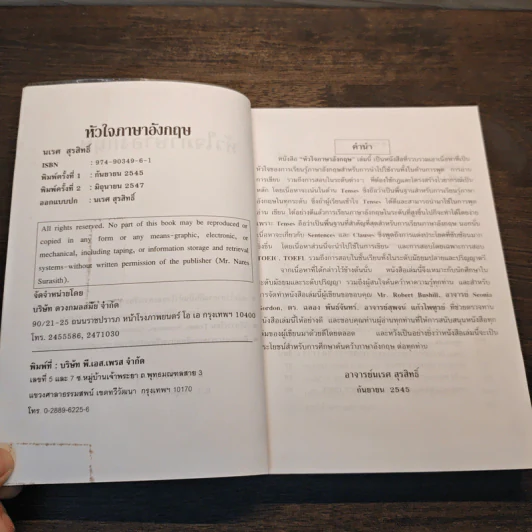 หัวใจภาษาอังกฤษ
นเรศ สุรสิทธิ์
ISBN : 974-90349-6-1
พิมพ์ครั้งที่ 1 : กันยายน 2545
พิมพ์ครั้งที่ 2 : มิถุนายน 2547
ออกแบบปก : นเรศ สุรสิทธิ์
All rights reserved. No part of this book may be reproduced or
copied in any form or any means—graphic, electronic, or
mechanical, including taping, or information storage and retrieval
systems—without written permission of the publisher (Mr. Nares
Surasith).
จัดจำหน่ายโดย
บริษัท ดวงกมลสมัย จำกัด
90/21-25 ถนนราชปรารภ หน้าโรงภาพยนตร์ โอ เอ กรุงเทพฯ 10400
โทร. 2455586, 2471030
พิมพ์ที่ : บริษัท พี.เอส.เพรส จำกัด
เลขที่ 5 และ 7 ซ.หมู่บ้านเจ้าพระยา ถ.พุทธมณฑลสาย 3
แขวงศาลาธรรมสพน์ เขตทวีวัฒนา กรุงเทพฯ 10170
โทร. 0-2889-6225-6
คำนำ
หนังสือ "หัวใจภาษาอังกฤษ" เล่มนี้ เป็นหนังสือที่รวบรวมเอาเนื้อหาที่เป็น
หัวใจของการเรียนรู้ภาษาอังกฤษสำหรับการนำไปใช้งานทั้งในด้านการพูด การอ่าน
การเขียน รวมถึงการสอบในระดับต่างๆ
หลัก โดยเนื้อหาจะเน้นในด้าน Tenses ซึ่งถือว่าเป็นพื้นฐานสำหรับการเรียนรู้ภาษา
อังกฤษในทุกระดับ ซึ่งถ้าผู้เรียนเข้าใจเรื่อง Tenses ได้ดีและสามารถนำมาใช้ในการพูด
อ่าน เขียน ได้อย่างดีแล้วการเรียนภาษาอังกฤษในระดับที่สูงขึ้นไปก็จะทำได้โดยง่าย
เพราะ Tenses ถือว่าเป็นพื้นฐานที่สำคัญที่สุดสำหรับการเรียนภาษาอังกฤษ นอกนั้น
เนื้อหาจะเกี่ยวกับ Sentences และ Clauses
TOEIC, TOEFL รวมถึงการสอบในชั้นเรียนทั้งในระดับมัธยมปลายและปริญญาตรี
จากเนื้อหาที่ได้กล่าวไว้ข้างต้นนั้น หนังสือเล่มนี้จึงเหมาะกับนักศึกษาใน
ระดับมัธยมและระดับปริญญา รวมถึงผู้สนใจค้นคว้าหาความรู้ทุกท่าน และสำหรับ
การจัดทำหนังสือเล่มนี้ผู้เขียนขอขอบคุณ Mr. Robert Bushill, อาจารย์
Gordon, ดร. แสลง พันธ์จันทร์, อาจารย์สุพจน์ แก้วไพฑูรย์ ที่ช่วยตรวจทาน
หนังสือเล่มนี้ให้อย่างดี และขอบคุณท่านผู้อ่านทุกท่านที่ให้การสนับสนุนหนังสือทุก
เล่มของผู้เขียนมาด้วยดีโดยตลอด และหวังเป็นอย่างยิ่งว่าหนังสือเล่มนี้จะเป็น
ประโยชน์สำหรับการศึกษาค้นคว้าภาษาอังกฤษ ต่อทุกท่าน
อาจารย์นเรศ สุรสิทธิ์
กันยายน 2545